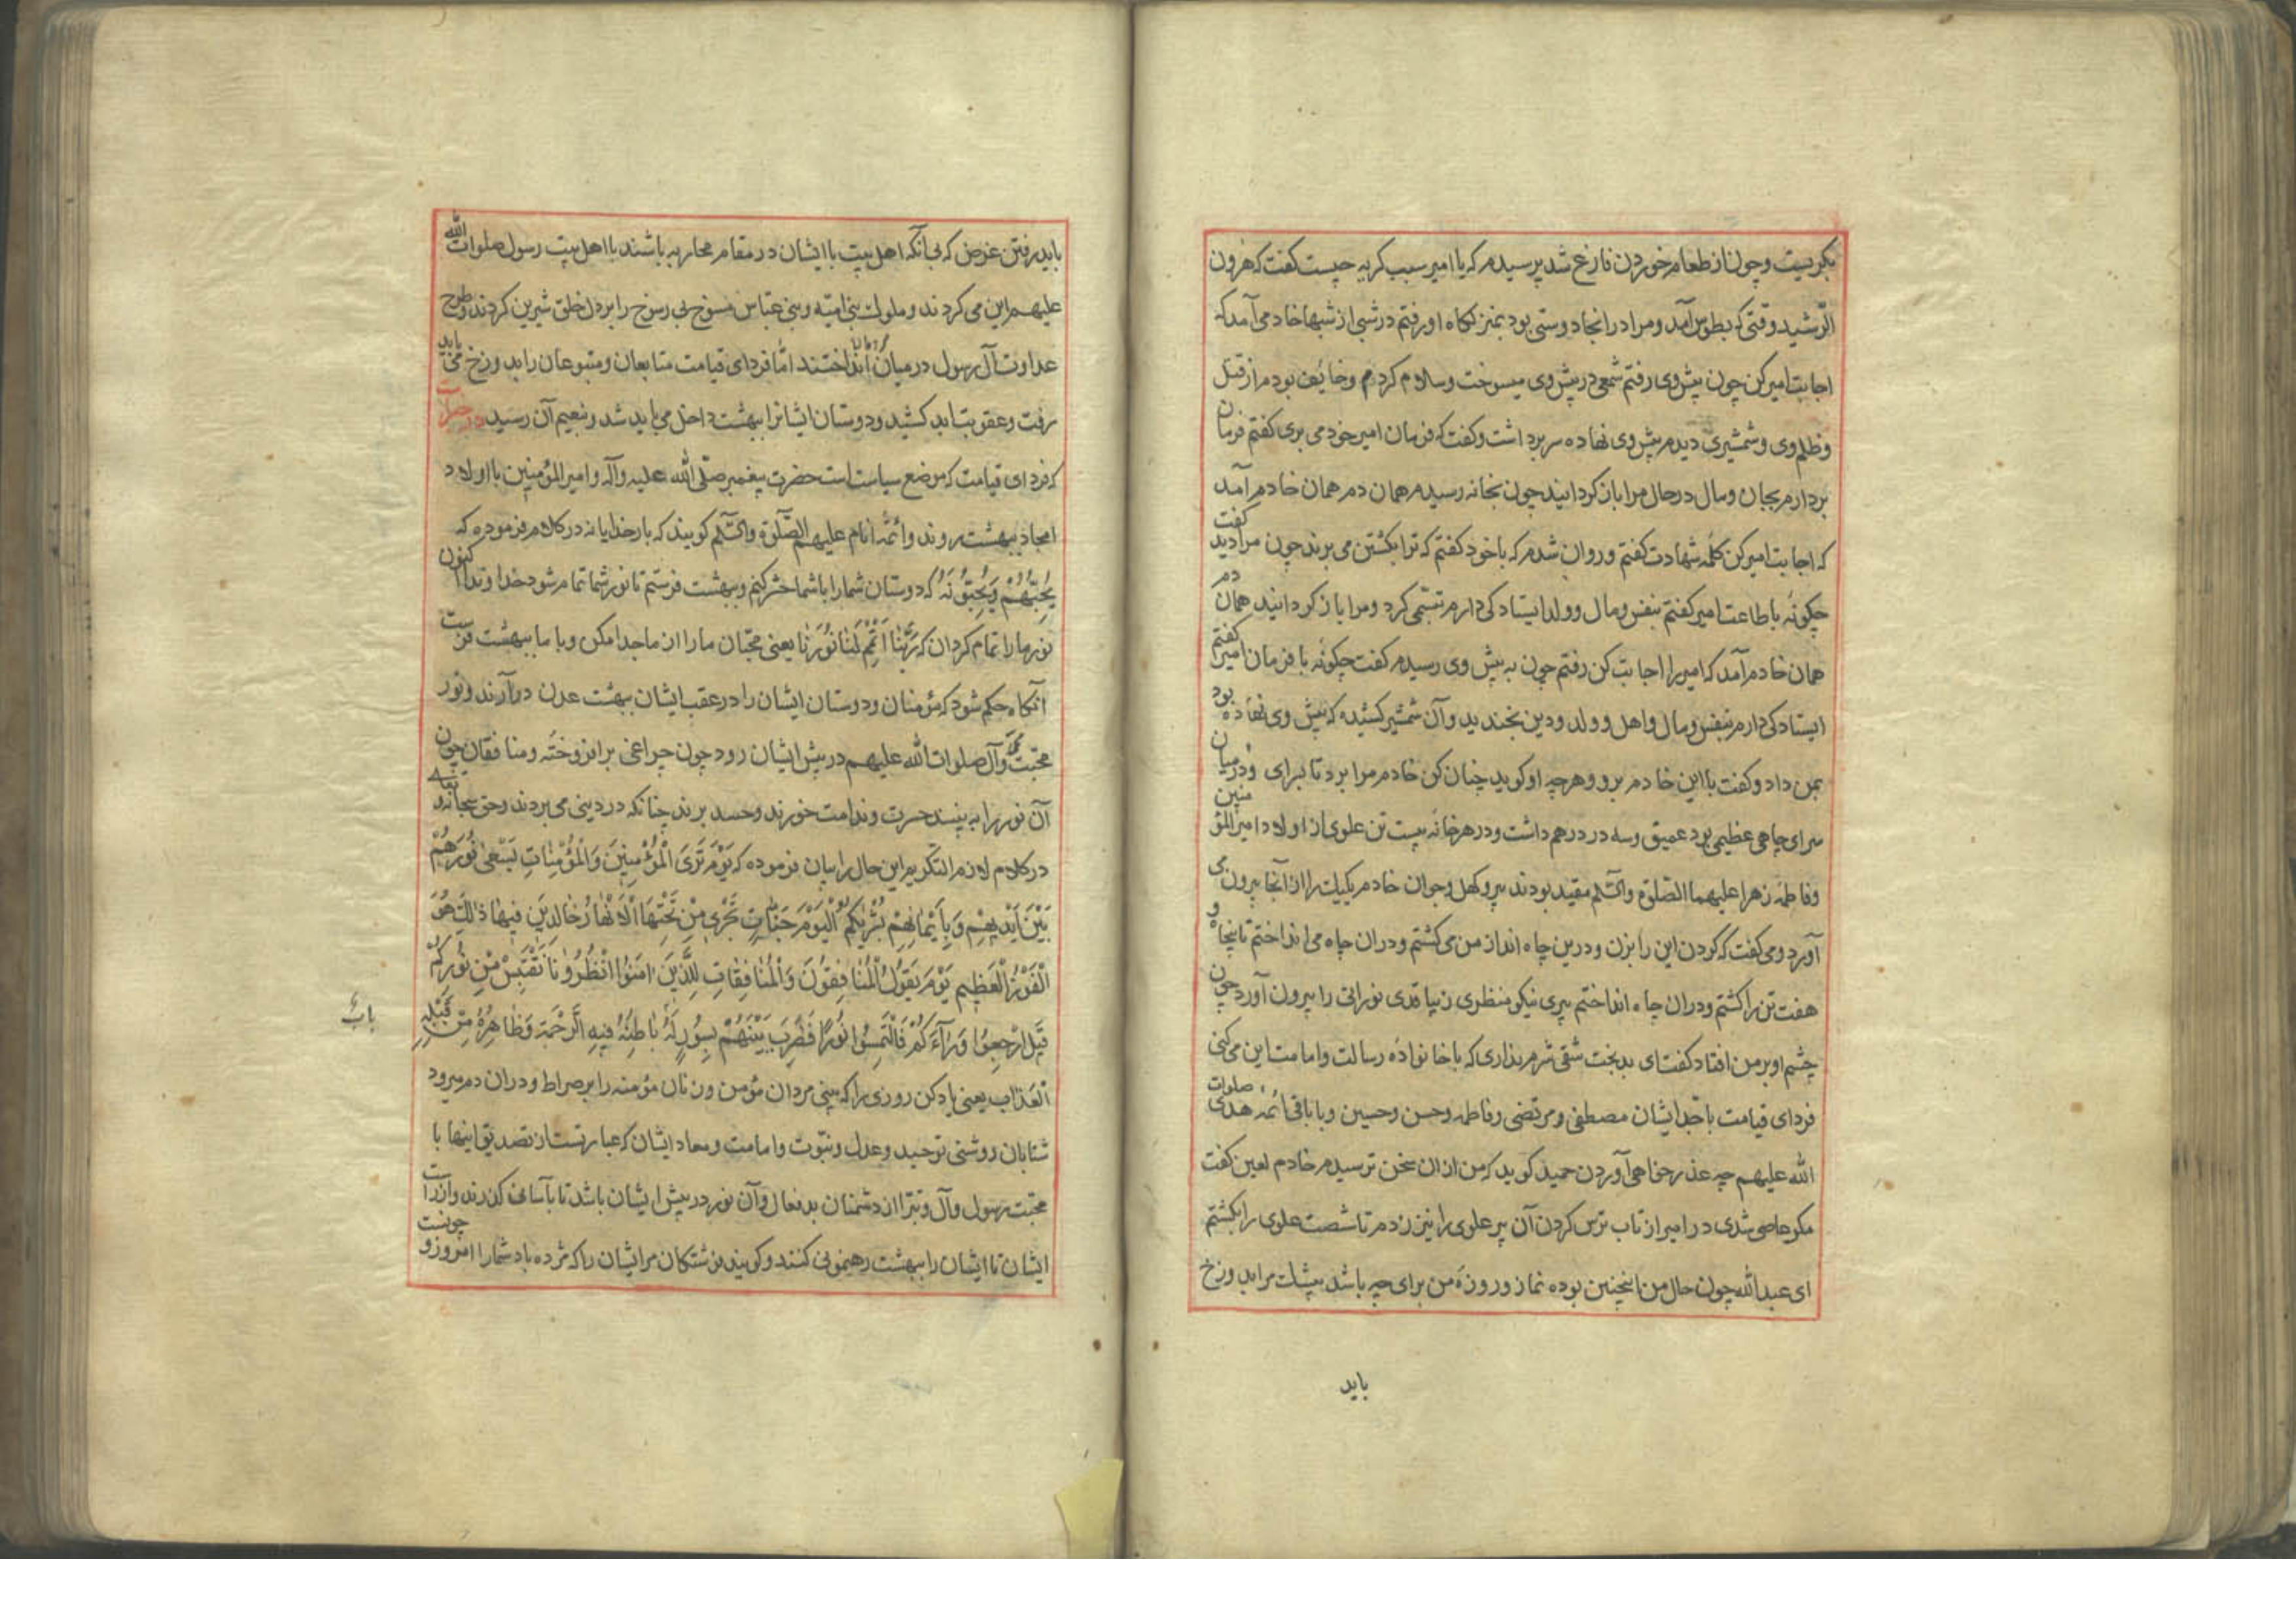 بکریست و چون از طعام خوردن فارغ شد پرسیدم که یا امیر سبب کریه چیست کفت که هرون
الرّشید وقتی که بطوس آمد و مرا در انجا دوستی بود بمنزلکاه او رفتم در شبی از شبها خادمی آمد که
اجابت امیر کن چون پیش وی رفتم شمعی در پیش وی میسوخت و سلام کردم و خایف بودم از قتل
و ظلم وی و شمشیری دیدم پیش وی نهاده سر برداشت و کفت که فرمان امیر خود می بری کفتم فرمان
بردارم بجان و مال در حال مرا باز کردانید چون بخانه رسیدم همان دم همان خادم آمد
که اجابت امیر کن کلمه شهادت کفتم و روان شدم که با خود کفتم که ترا بکشتن می برند چون مرا دید کفت
چکونه با طاعت امیر کفتم بنفس و مال و ولد ایستادکی دارم تبسّمی کرد و مرا باز کردانید همان دم
همان خادم آمد که امیر را اجابت کن رفتم چون به پیش وی رسیدم کفت چکونه با فرمان امیر کفتم
ایستادکی دارم بنفس و مال و اهل و ولد و دین بخندید و آن شمشیر کشیده که پیش وی نهاده بود
بمن داد و کفت با این خادم برو و هرچه او کوید چنان کن خادم مرا برد تا سرای و در میان
سرای چاهی عظیمی بود عمیق و سه در درهم داشت و در هر خانه بیست تن علوی از اولاد امیر المؤمنین
و فاطمه زهرا علیهما الصّلوة والسّلم مقید بودند پیر و کهل و جوان خادم یکیک را از انجا بیرون می
آورد و می کفت که کردن این را بزن و درین چاه انداز من می کشتم و دران چاه می انداختم تا پنجاه و
هفت تن را کشتم و دران چاه انداختم پیری نیکو منظری زیبا قدی نورانی را بیرون آورد چون
چشم او بر من افتاد کفت ای بدبخت شقی شرم نداری که با خانواده رسالت و امامت این می کنی
فردای قیامت با جدّ ایشان مصطفی و مرتضی و فاطمه و حسن و حسین و با باقی ائمه هدی صلوات
الله علیهم چه عذر خواهی آوردن حمید کوید که من از ان سخن ترسیدم خادم لعین کفت
مکر عاصی شدی در امیر از تاب ترس کردن آن پیر علوی را نیز زدم تا شصت علوی را بکشتم
ای عبدالله چون حال من اینچنین بوده نماز و روزهٔ من برای چه باشد بیشک مرا بدوزخ
باید
باید رفتن غرض که بی آنکه اهل بیت با ایشان در مقام محاربه باشند با اهل بیت رسول صلوات الله
علیهم این می کردند و ملوک بنی امیّه و بنی عبّاس منسوخ بی رسوخ را بر دل خلق شیرین کردند و طرح
عداوت آل رسول در میان انداختند امّا فردای قیامت متابعان و متبوعان را بدوزخ می باید
رفت و عقوبت باید کشید و دوستان ایشانرا ببهشت داخل می باید شد و بنعیم آن رسید در خبر است
که فردای قیامت که موضع سیاست است حضرت پیغمبر صلّی الله علیه وآله و امیر المؤمنین با اولاد
امجاد ببهشت روند وائمّه انام علیهم الصّلوة والسّلم کویند که بار خدایا نه در کلام فرموده که
یُحِبُّهُمْ وَیُحِبُّونَهُ که دوستان شما را با شما حشر کنم و ببهشت فرستم تا نور شما تمام شود خداوندا اکنون
نور ما را تمام کردان که رَبَّنَا اَتْمِمْ لَنَا نُورَنَا یعنی محبّان ما را از ما جدا مکن و با ما ببهشت فرست
آنکاه حکم شود که مؤمنان و دوستان ایشان را در عقب ایشان ببهشت عدن درآرند و نور
محبّت محمّد وآل صلوات الله علیهم در پیش ایشان رود چون چراغی برافروخته و منافقان چون
آن نور را به بینند حسرت و ندامت خورند و حسد برند چنانکه در دینی می بردند و حق سبحانه و تعالی
در کلام لازم التکریم این حال را بیان فرموده که یَوْمَ تَرَی الْمُؤْمِنِینَ وَالْمُؤْمِنَاتِ یَسْعَی نُورُهُمْ
بَیْنَ اَیْدِیهِمْ وَبِاَیْمَانِهِمْ بُشْرٰیکُمُ الْیَوْمَ جَنَّاتٌ تَجْرِی مِنْ تَحْتِهَا الْاَنْهَارُ خَالِدِینَ فِیهَا ذٰلِکَ هُوَ
الْفَوْزُ الْعَظِیمُ یَوْمَ یَقُولُ الْمُنَافِقُونَ وَالْمُنَافِقَاتُ لِلَّذِینَ اٰمَنُوا انْظُرُونَا نَقْتَبِسْ مِنْ نُورِکُمْ
قِیلَ ارْجِعُوا وَرَآءَکُمْ فَالْتَمِسُوا نُورًا فَضُرِبَ بَیْنَهُمْ بِسُورٍ لَهُ بَابٌ بَاطِنُهُ فِیهِ الرَّحْمَةُ وَظَاهِرُهُ مِنْ قِبَلِهِ
الْعَذَابُ یعنی یاد کن روزی را که بینی مردان مؤمن و زنان مؤمنه را بر صراط و دران دم میرود
شتابان روشنی توحید و عدل و نبوّت و امامت و معاد ایشان که عبارتست از تصدیق اینها با
محبّت رسول و آل و تبرّا از دشمنان بدفعال و آن نور در پیش ایشان باشد تا بآسانی کذرند و از راست
ایشان تا ایشان را ببهشت رهنمونی کنند و کویند فرشتکان مر ایشان را که مژده باد شما را امروز و